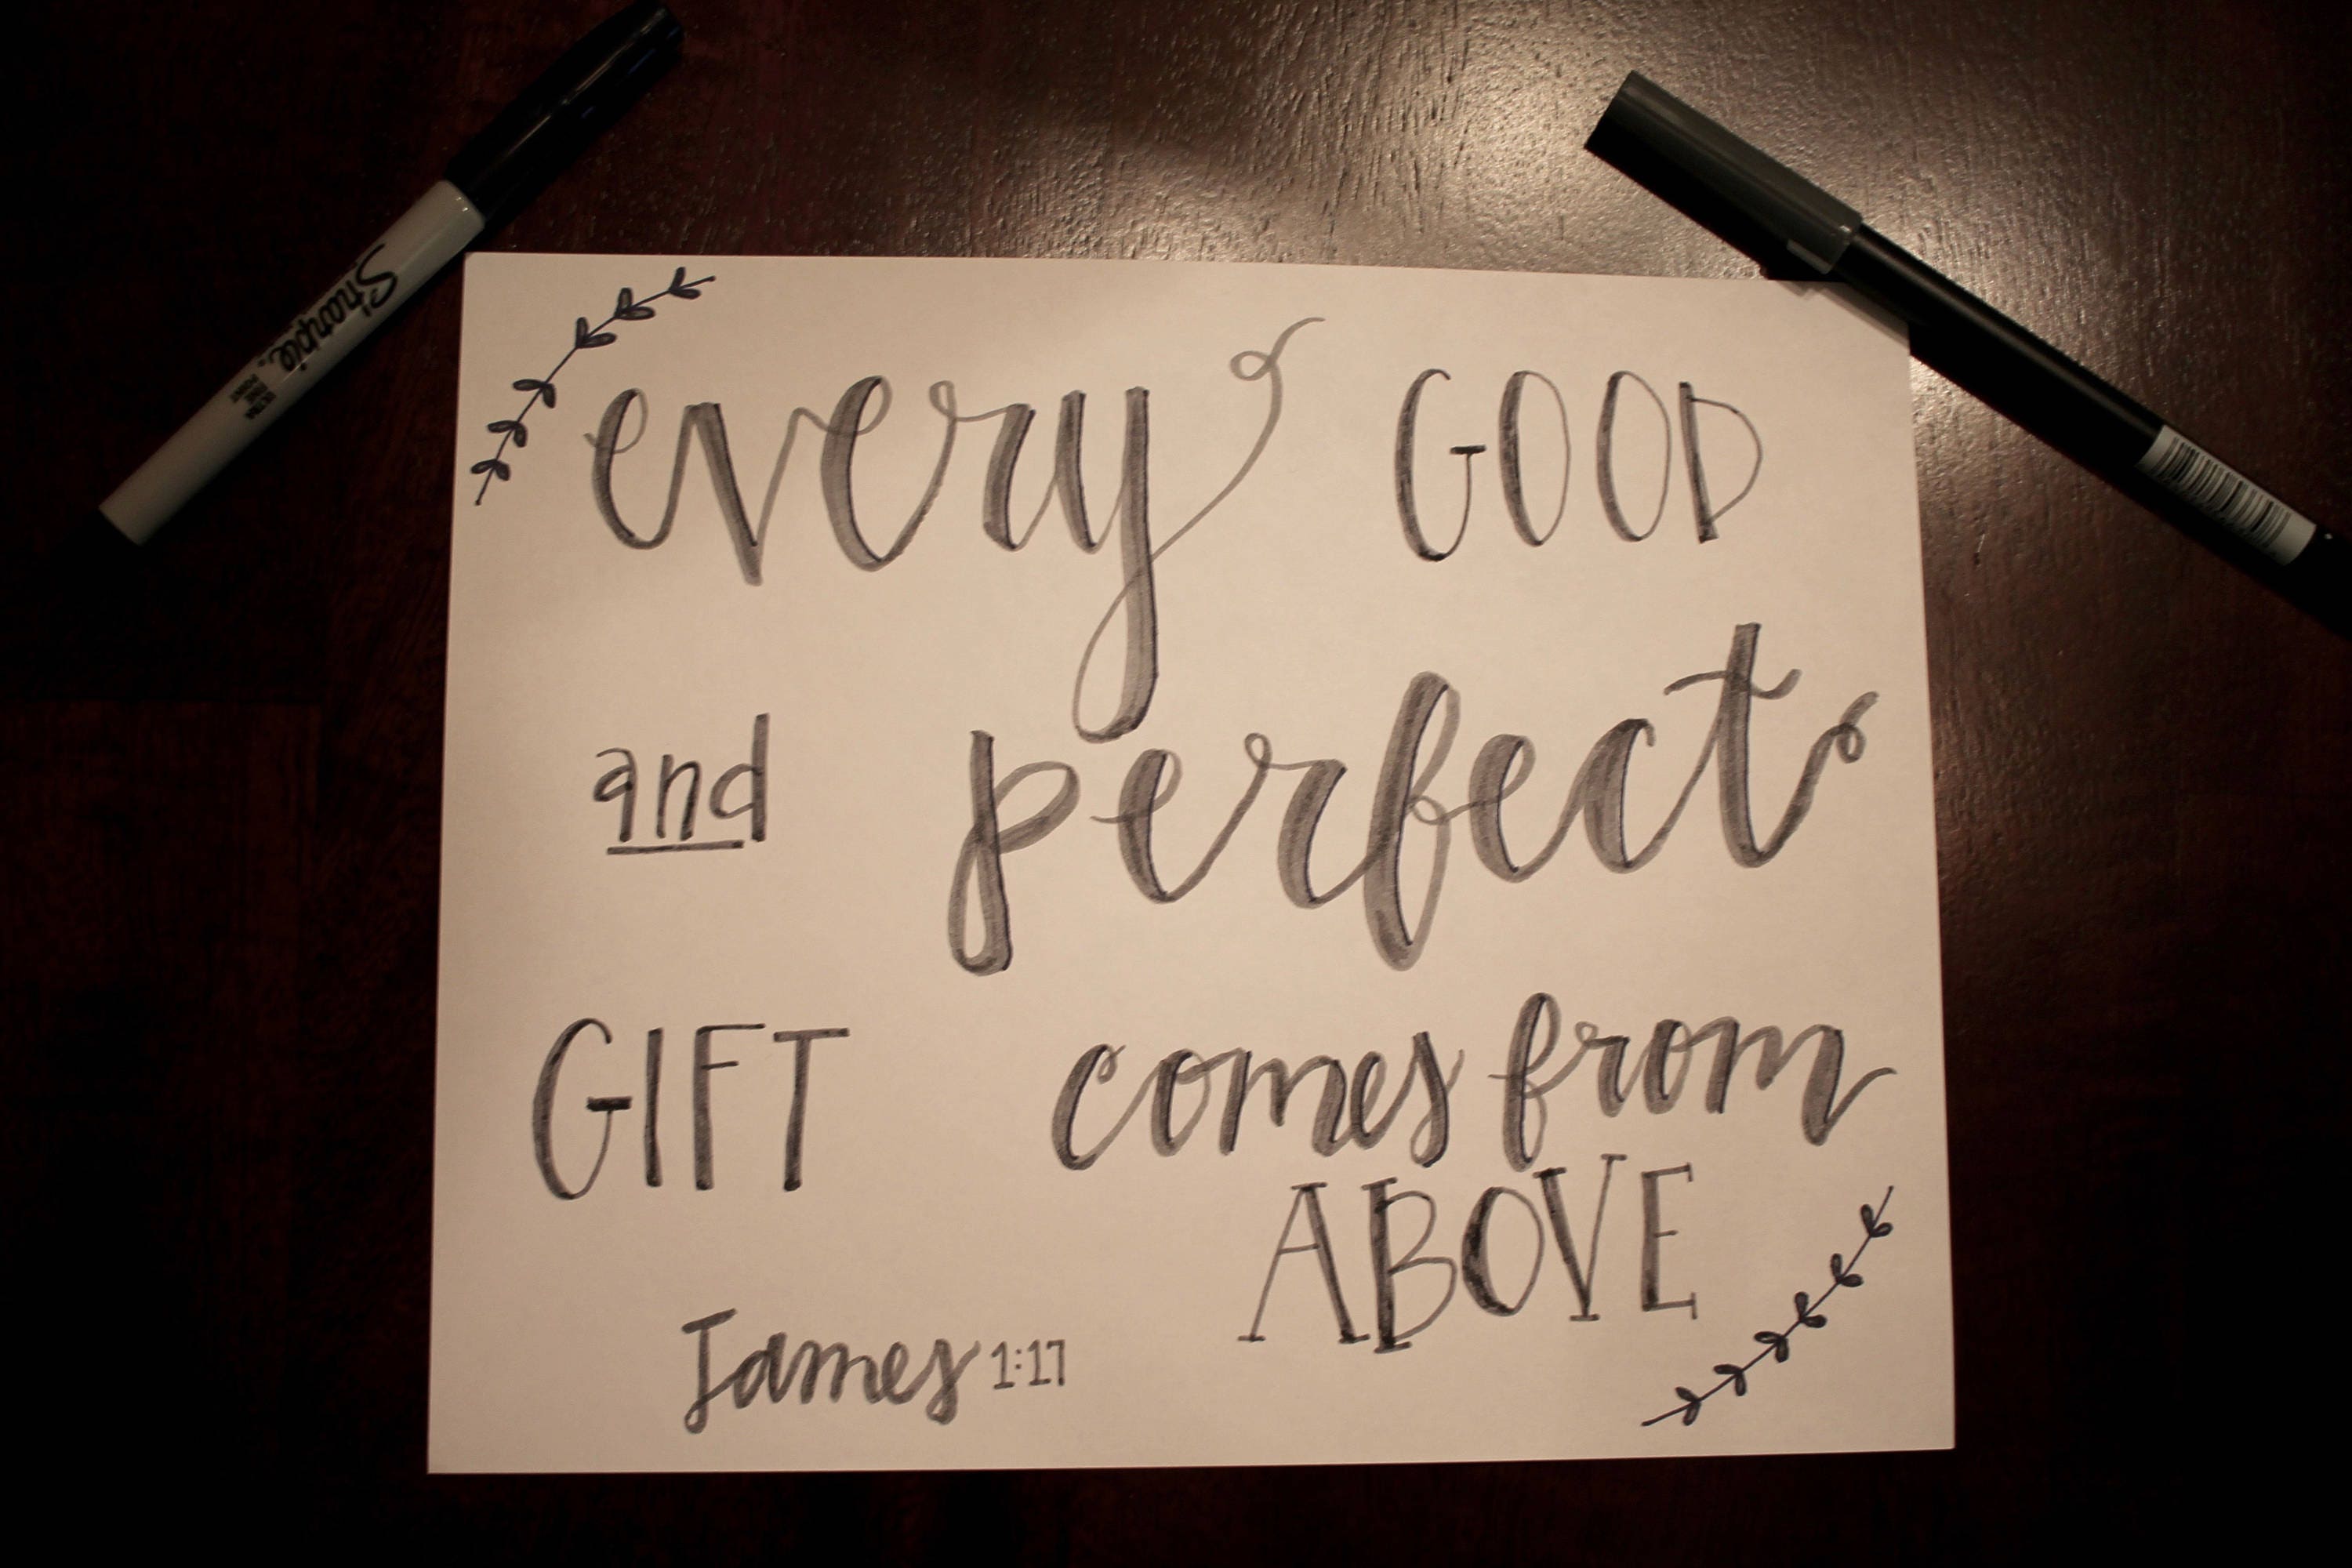 every GOOD
and perfect
GIFT comes from
ABOVE
James 1:17
Sharpie.
ULTRA
FINE
POINT